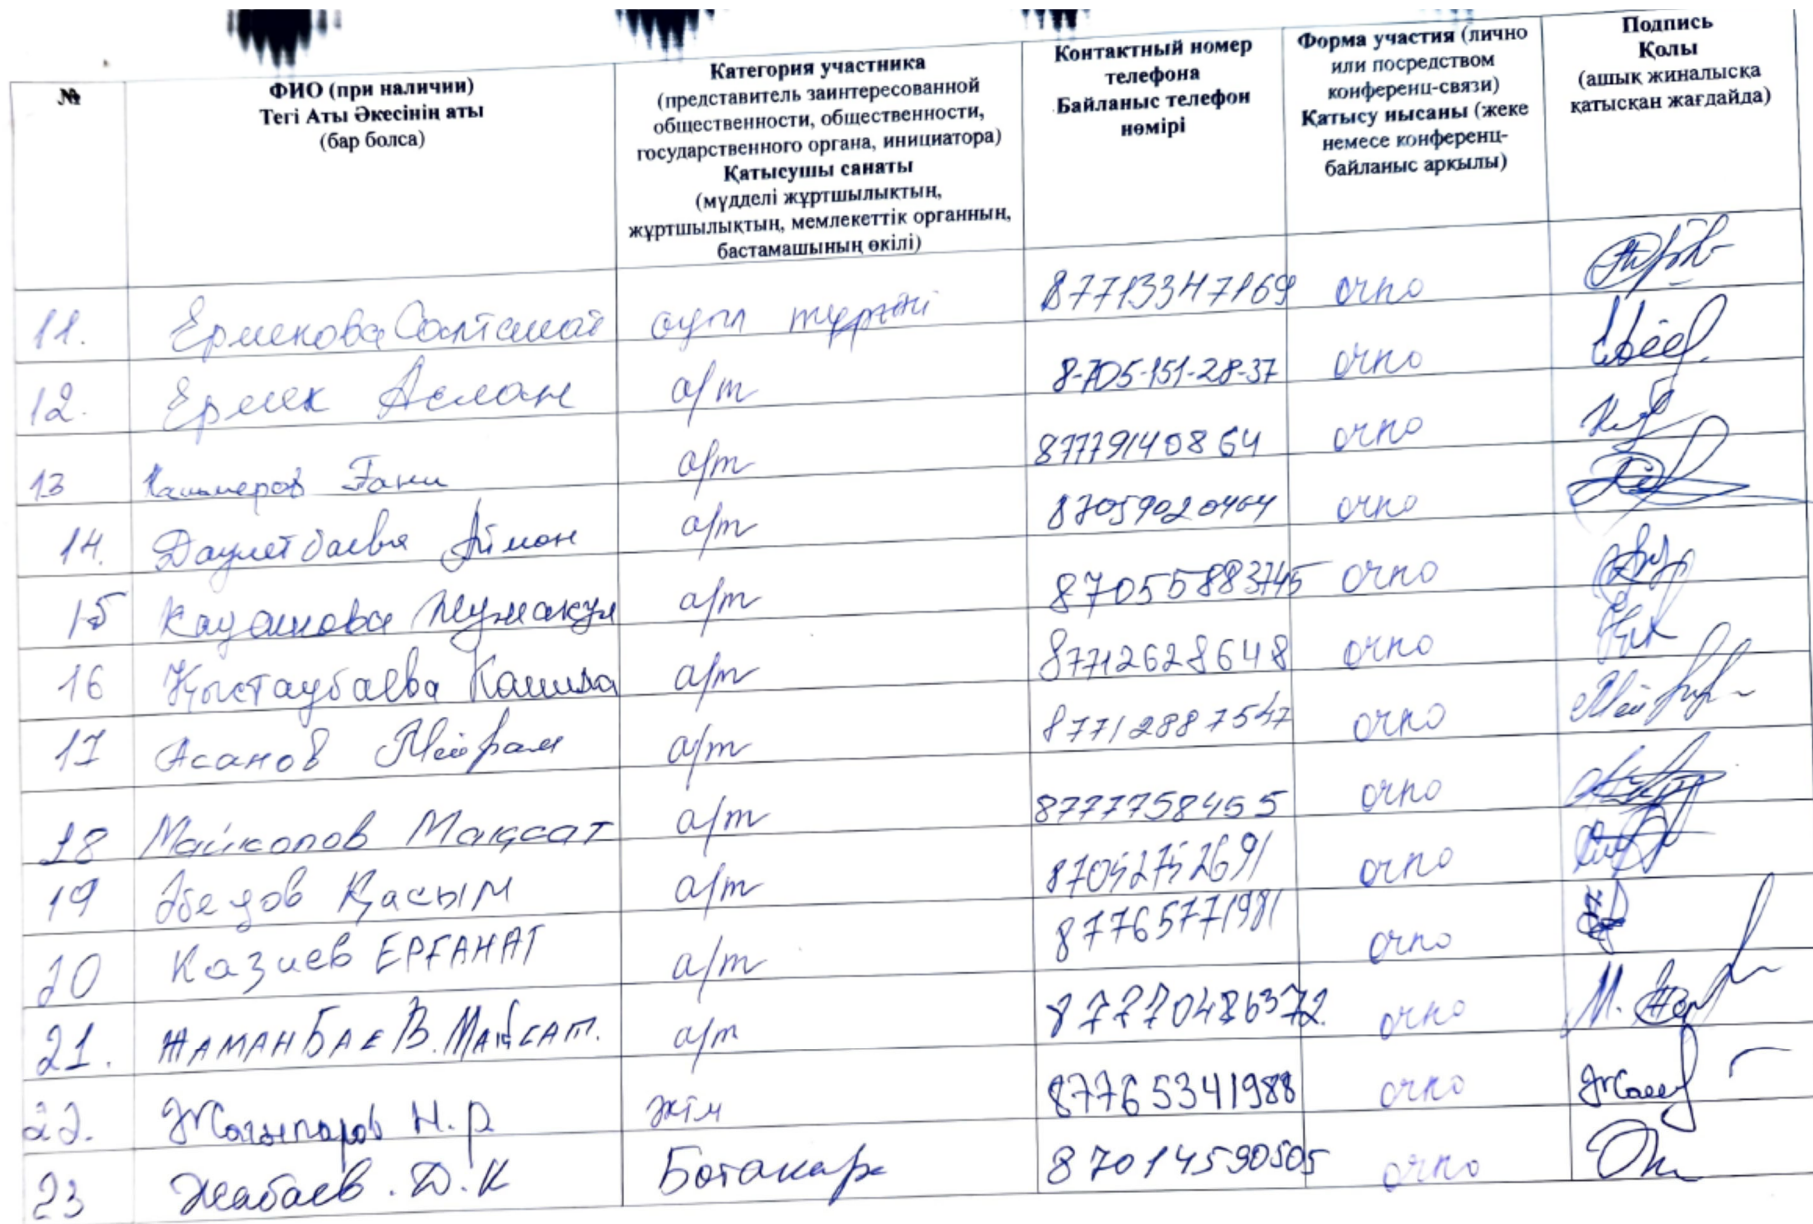 №
ФИО (при наличии)
Тегі Аты Әкесінің аты
(бар болса)
Категория участника
(представитель заинтересованной
общественности, общественности,
государственного органа, инициатора)
Қатысушы санаты
(мүдделі жұртшылықтың,
жұртшылықтың, мемлекеттік органның,
бастамашының өкілі)
Контактный номер
телефона
Байланыс телефон
нөмірі
Форма участия (лично
или посредством
конференц-связи)
Қатысу нысаны (жеке
немесе конференц-
байланыс арқылы)
Подпись
Қолы
(ашық жиналысқа
қатысқан жағдайда)
11. Ермекова Салтанат ауыл тұрғыны 87713347169 очно
12. Ермек Аслан а/т 8-705-151-28-37 очно
13 Гани а/т 87779140864 очно
14. Даулетбаева Айман а/т 87059020464 очно
15 Жумакул а/т 87055883745 очно
16 Қыстаубаева а/т 87712628648 очно
17 Асанов Мейрам а/т 87712887547 очно
18 Майкопов Мақсат а/т 8777758455 очно
19 Қасым а/т 87052752691 очно
20 Казиев ЕРҒАНАТ а/т 87765771981 очно
21. ЖАМАНБАЕВ. а/т 87770486372 очно
22. Жағыпаров Н.Р 87765341988 очно
23 Жабаев. Д.К Ботакара 87014590505 очно